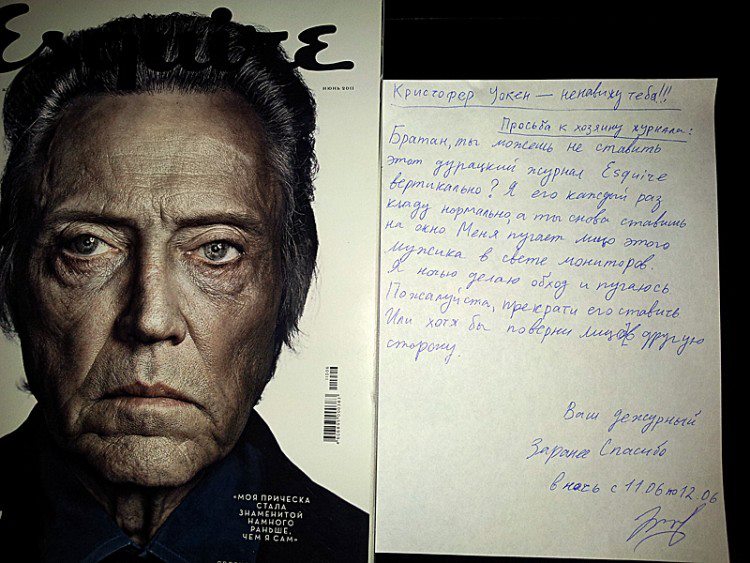 Esquire
ИЮНЬ 2011
«МОЯ ПРИЧЕСКА
СТАЛА
ЗНАМЕНИТОЙ
НАМНОГО
РАНЬШЕ,
ЧЕМ Я САМ»
Кристофер Уокен — ненавижу тебя!!!
Просьба к хозяину журнала:
Братан, ты можешь не ставить
этот дурацкий журнал Esquire
вертикально? Я его каждый раз
кладу нормально, а ты снова ставишь
на окно Меня пугает лицо этого
мужика в свете мониторов.
Я ночью делаю обход и пугаюсь
Пожалуйста, прекрати его ставить
Или хотя бы поверни лицом в другую
сторону.
Ваш дежурный
Заранее Спасибо
в ночь с 11.06 по 12.06